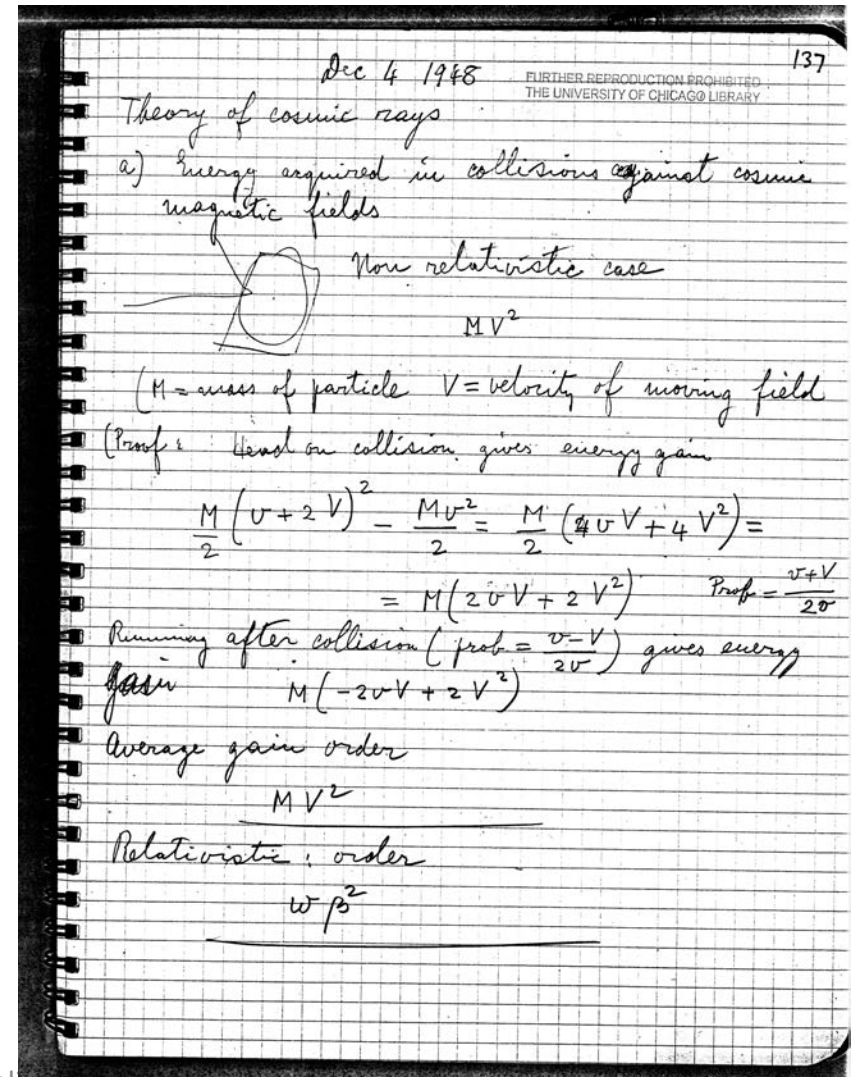 137
Dec 4 1948
FURTHER REPRODUCTION PROHIBITED
THE UNIVERSITY OF CHICAGO LIBRARY
Theory of cosmic rays
a) Energy acquired in collisions against cosmic
magnetic fields
Non relativistic case
MV²
(M = mass of particle V = velocity of moving field
(Proof: Head on collision gives energy gain
M/2 (v + 2V)² - Mv²/2 = M/2 (4vV + 4V²) =
= M(2vV + 2V²) Prob = v+V/2v
Running after collision (prob = v-V/2v) gives energy
gain M(-2vV + 2V²)
Average gain order
MV²
Relativistic: order
wβ²